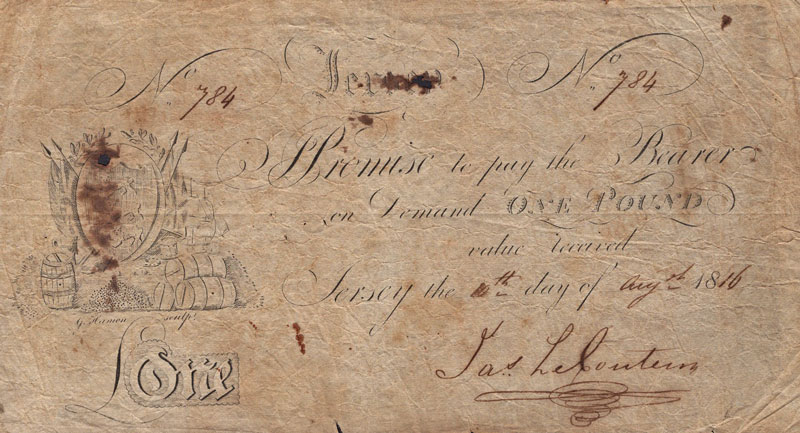 Jersey
No. 784 No. 784
I Promise to pay the Bearer
on Demand ONE POUND
value received
Jersey the 10th day of Augst 1816
G. Hamon sculpt.
£One
Jas. LeCouteur